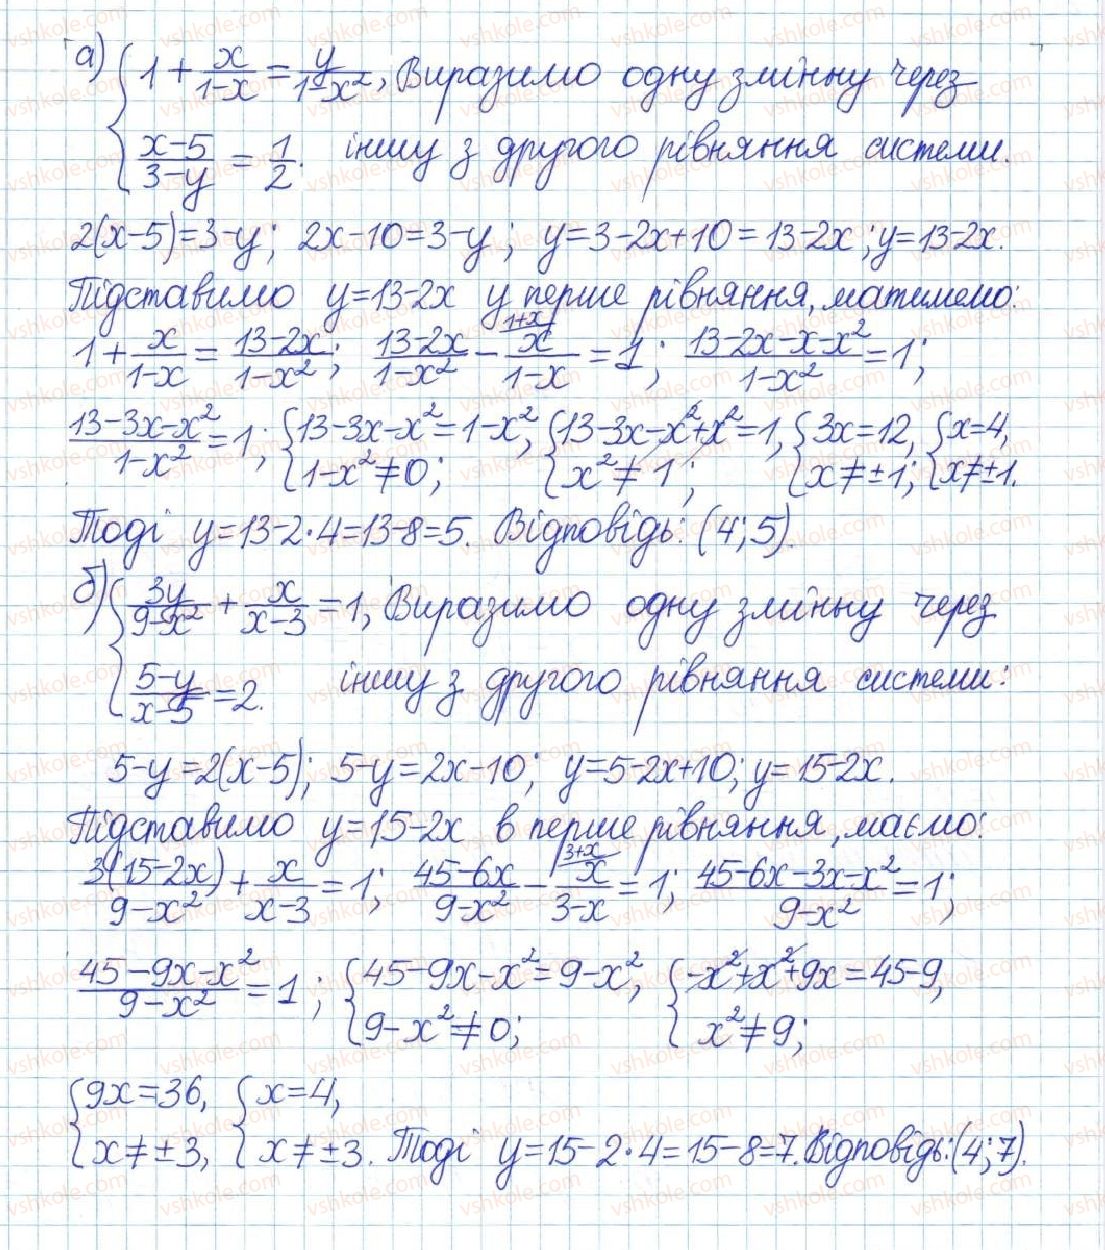 а) { 1 + x/(1-x) = y/(1-x²), Виразимо одну змінну через
(x-5)/(3-y) = 1/2. іншу з другого рівняння системи.
2(x-5)=3-y; 2x-10=3-y; y=3-2x+10=13-2x; y=13-2x.
Підставимо y=13-2x у перше рівняння, матимемо:
1 + x/(1-x) = (13-2x)/(1-x²); (13-2x)/(1-x²) - (1+x / x)/(1-x) = 1; (13-2x-x-x²)/(1-x²) = 1;
(13-3x-x²)/(1-x²) = 1; { 13-3x-x²=1-x², 1-x²≠0; { 13-3x-x²+x²=1, x²≠1; { 3x=12, x≠±1; { x=4, x≠±1.
Тоді y=13-2·4=13-8=5. Відповідь: (4;5).
б) { 3y/(9-x²) + x/(x-3) = 1, Виразимо одну змінну через
(5-y)/(x-5) = 2. іншу з другого рівняння системи:
5-y=2(x-5); 5-y=2x-10; y=5-2x+10; y=15-2x.
Підставимо y=15-2x в перше рівняння, маємо:
3(15-2x)/(9-x²) + x/(x-3) = 1; (45-6x)/(9-x²) - (3+x / x)/(3-x) = 1; (45-6x-3x-x²)/(9-x²) = 1;
(45-9x-x²)/(9-x²) = 1; { 45-9x-x²=9-x², 9-x²≠0; { -x²+x²+9x=45-9, x²≠9;
{ 9x=36, x≠±3, { x=4, x≠±3. Тоді y=15-2·4=15-8=7. Відповідь: (4;7).
vshkole.com